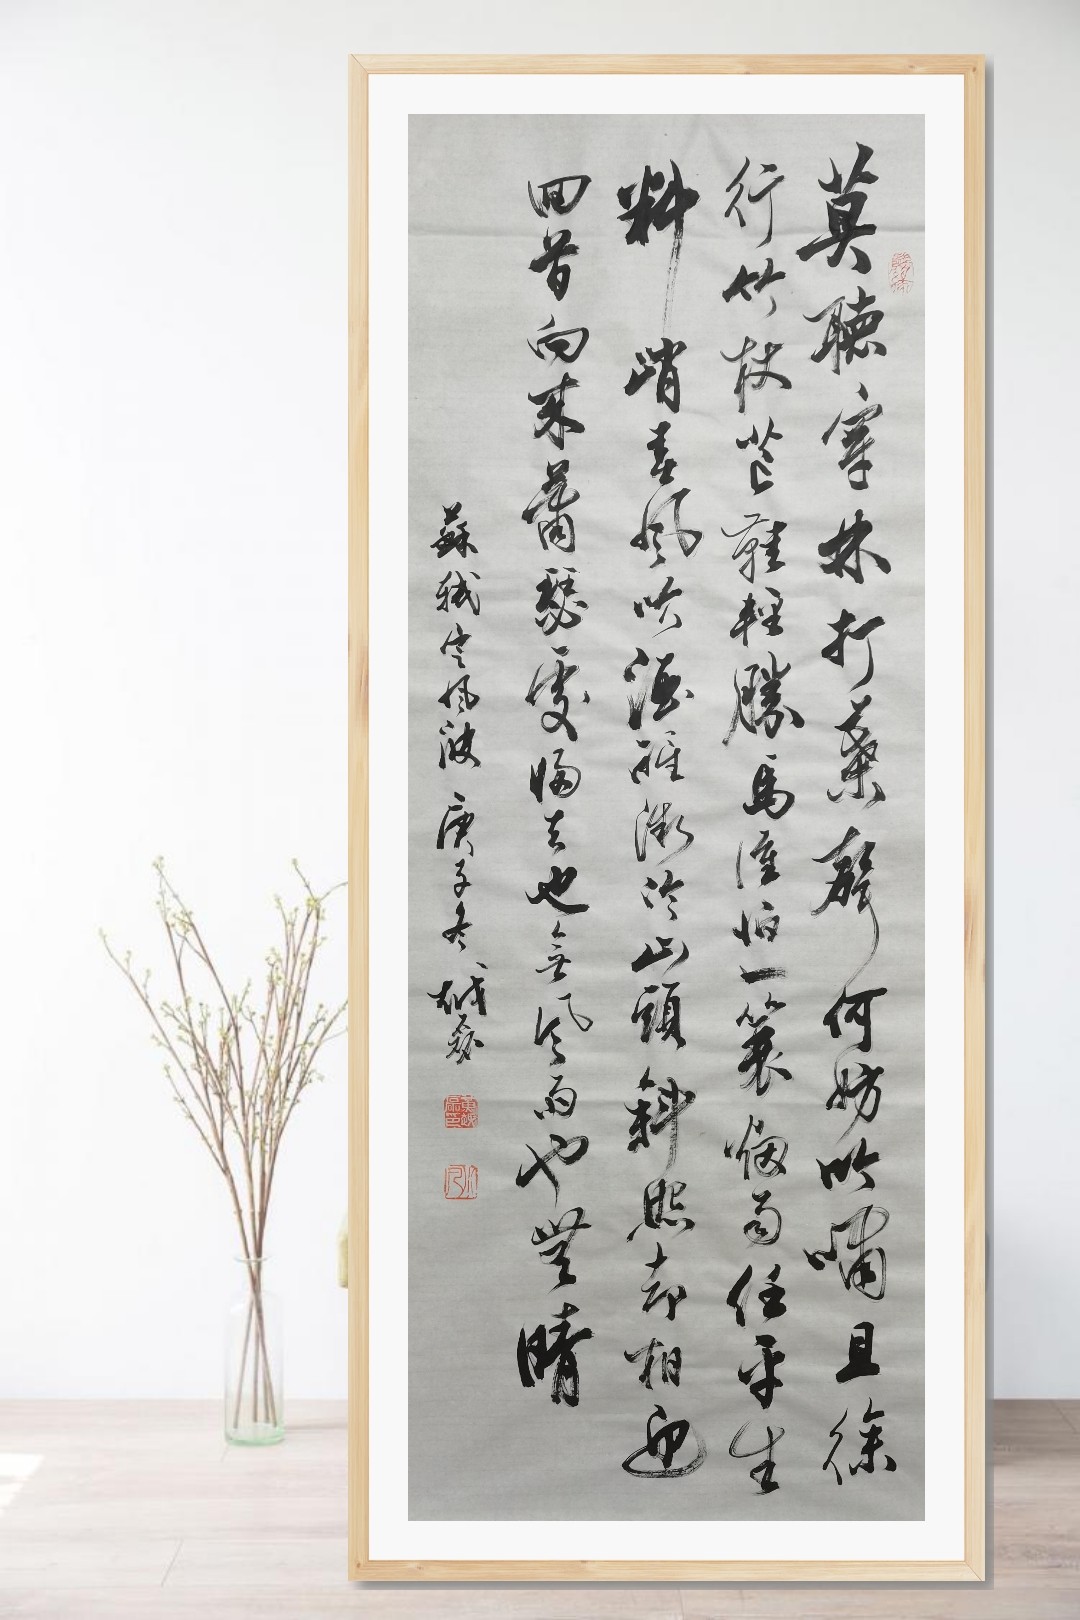 莫聽穿林打葉聲何妨吟嘯且徐
行竹杖芒鞋輕勝馬誰怕一蓑煙雨任平生
料峭春風吹酒醒微冷山頭斜照却相迎
回首向来蕭瑟處歸去也無風雨也無晴
蘇軾定風波 庚子冬